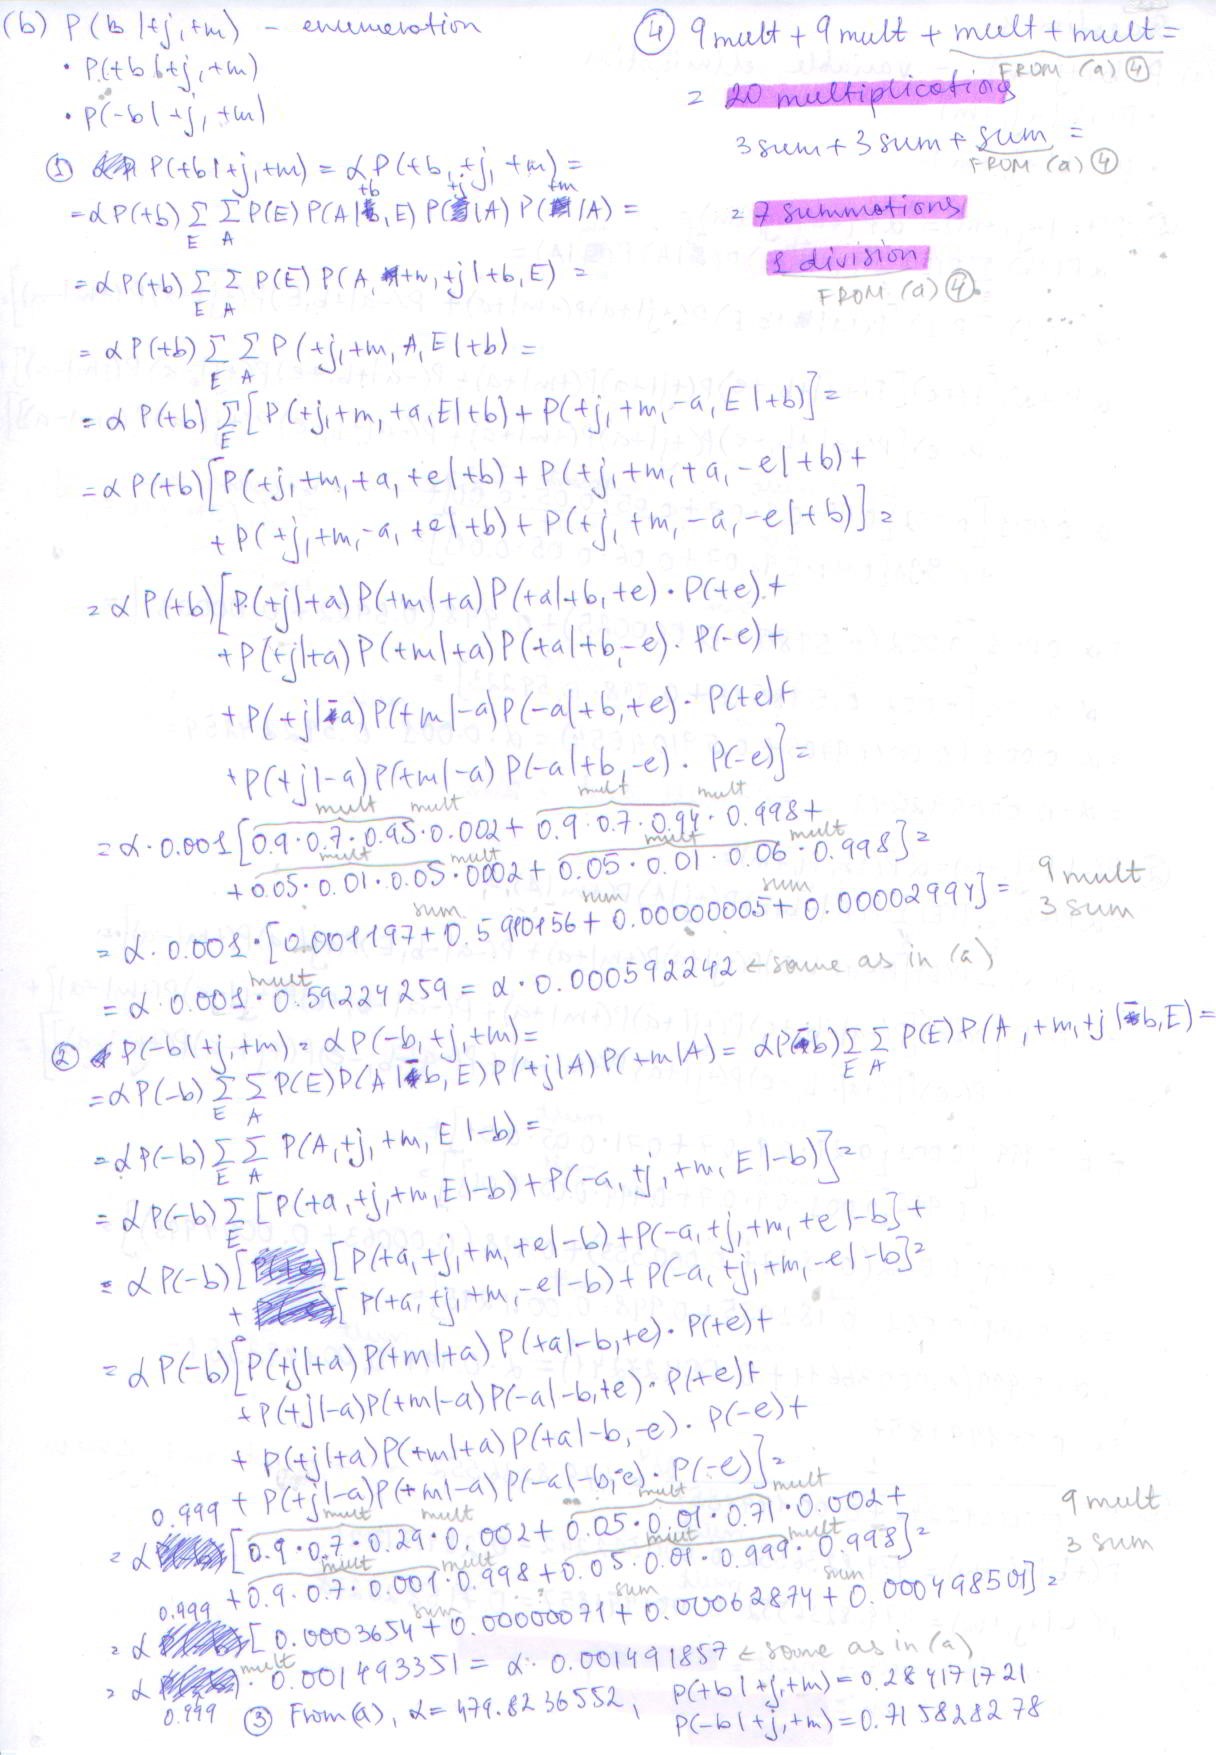 (b) P(B|+j,+m) - enumeration
• P(+b|+j,+m)
• P(-b|+j,+m)
① P(+b|+j,+m) = αP(+b,+j,+m) =
= αP(+b) Σ_E Σ_A P(E) P(A|+b,E) P(+j|A) P(+m|A) =
= αP(+b) Σ_E Σ_A P(E) P(A,+m,+j|+b,E) =
= αP(+b) Σ_E Σ_A P(+j,+m,A,E|+b) =
= αP(+b) Σ_E [P(+j,+m,+a,E|+b) + P(+j,+m,-a,E|+b)] =
= αP(+b) [P(+j,+m,+a,+e|+b) + P(+j,+m,+a,-e|+b) +
+ P(+j,+m,-a,+e|+b) + P(+j,+m,-a,-e|+b)] =
= αP(+b) [P(+j|+a) P(+m|+a) P(+a|+b,+e) · P(+e) +
+ P(+j|+a) P(+m|+a) P(+a|+b,-e) · P(-e) +
+ P(+j|-a) P(+m|-a) P(-a|+b,+e) · P(+e) +
+ P(+j|-a) P(+m|-a) P(-a|+b,-e) · P(-e)] =
mult mult mult mult
= α · 0.001 [0.9 · 0.7 · 0.95 · 0.002 + 0.9 · 0.7 · 0.94 · 0.998 +
mult mult mult mult
+ 0.05 · 0.01 · 0.05 · 0.002 + 0.05 · 0.01 · 0.06 · 0.998] =
9 mult
3 sum
sum sum sum
= α · 0.001 · [0.001197 + 0.5910156 + 0.00000005 + 0.00002994] =
mult
= α · 0.001 · 0.59224259 = α · 0.000592242 ← same as in (a)
② P(-b|+j,+m) = αP(-b,+j,+m) =
= αP(-b) Σ_E Σ_A P(E) P(A|-b,E) P(+j|A) P(+m|A) = αP(-b) Σ_E Σ_A P(E) P(A,+m,+j|-b,E) =
= αP(-b) Σ_E Σ_A P(A,+j,+m,E|-b) =
= αP(-b) Σ_E [P(+a,+j,+m,E|-b) + P(-a,+j,+m,E|-b)] =
= αP(-b) [[P(+a,+j,+m,+e|-b) + P(-a,+j,+m,+e|-b] +
+ [P(+a,+j,+m,-e|-b) + P(-a,+j,+m,-e|-b]=
= αP(-b) [P(+j|+a) P(+m|+a) P(+a|-b,+e) · P(+e) +
+ P(+j|-a) P(+m|-a) P(-a|-b,+e) · P(+e) +
+ P(+j|+a) P(+m|+a) P(+a|-b,-e) · P(-e) +
+ P(+j|-a) P(+m|-a) P(-a|-b,-e) · P(-e)] =
mult mult mult mult
= α 0.999 [0.9 · 0.7 · 0.29 · 0.002 + 0.05 · 0.01 · 0.71 · 0.002 +
mult mult mult mult
+ 0.9 · 0.7 · 0.001 · 0.998 + 0.05 · 0.01 · 0.999 · 0.998] =
9 mult
3 sum
sum sum sum
= α 0.999 [0.0003654 + 0.00000071 + 0.00062874 + 0.000498501] =
mult
= α 0.999 · 0.001493351 = α · 0.001491857 ← same as in (a)
③ From (a), α = 479.8236552, P(+b|+j,+m) = 0.284171721
P(-b|+j,+m) = 0.715828278
④ 9 mult + 9 mult + mult + mult =
FROM (a) ④
= 20 multiplications
3 sum + 3 sum + sum =
FROM (a) ④
= 7 summations
1 division
FROM (a) ④.